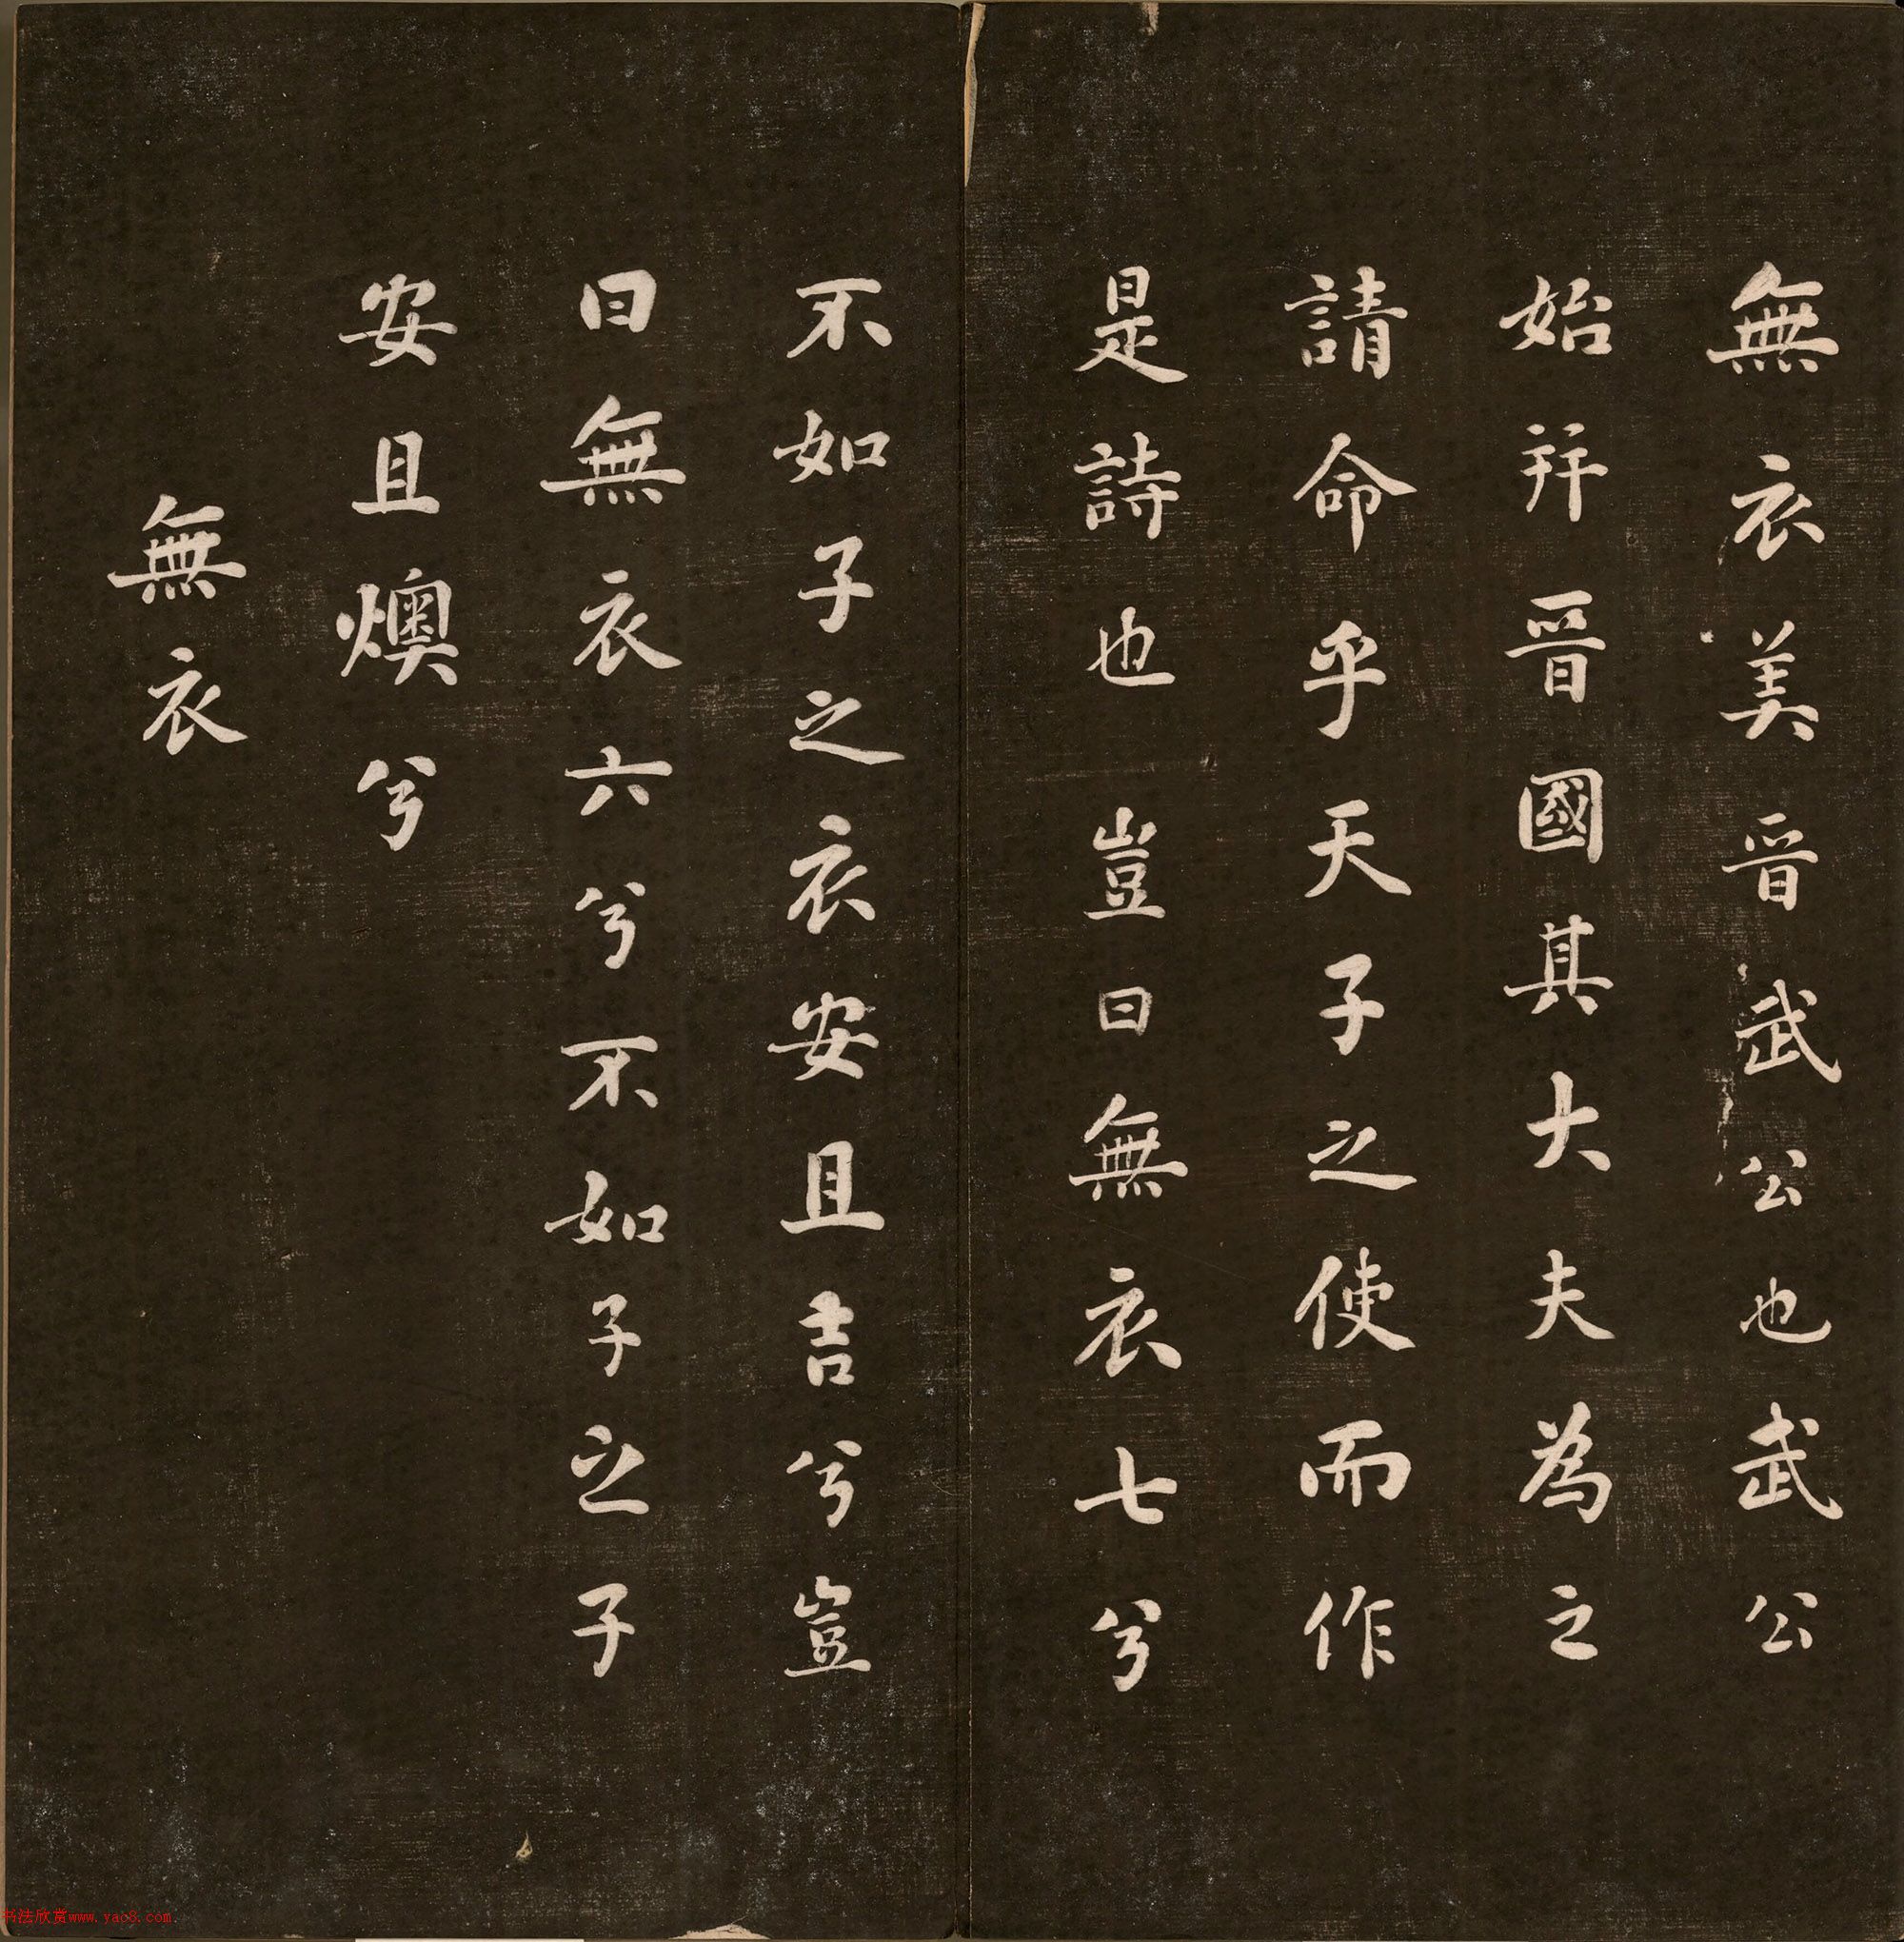 無衣美晉武公也武公
始并晉國其大夫為之
請命乎天子之使而作
是詩也 豈曰無衣七兮
不如子之衣安且吉兮豈
曰無衣六兮不如子之子
安且燠兮
無衣
书法欣赏www.yac8.com.